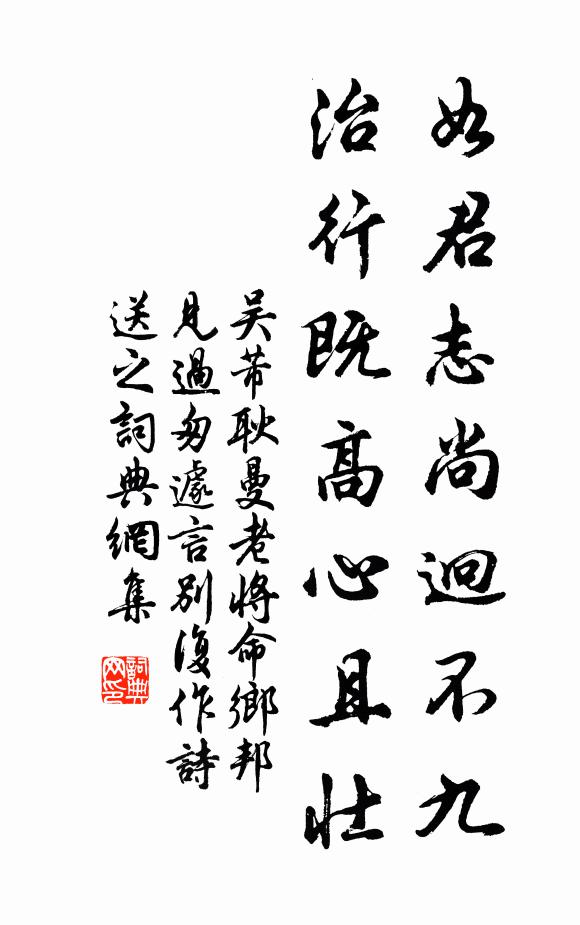 如君志尚迥不九
治行既高心且壯
吴芾耿曼老將命鄉邦
見過匆遽言別復作詩
送之詞典網集
詞典网印